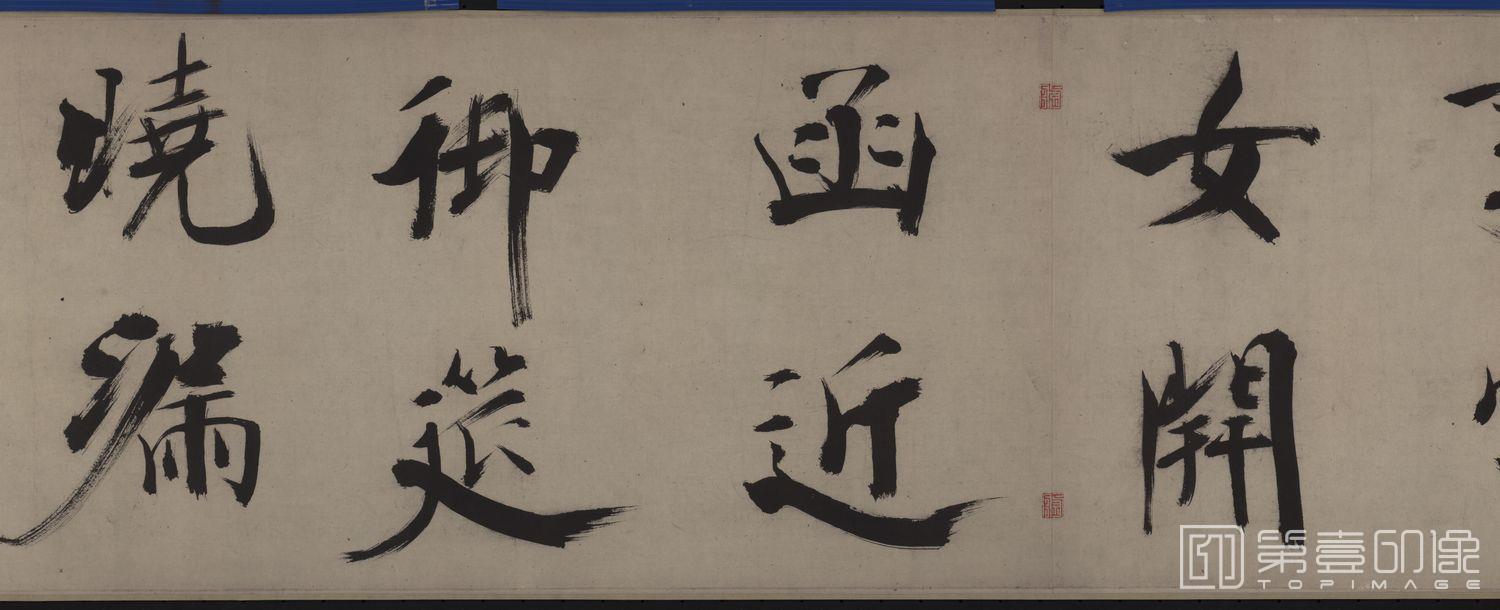 女開
函近
御筵
曉漏
第壹印像
TOPIMAGE